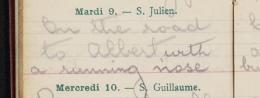 Mardi 9. — S. Julien.
On the road
to Albert with
a running nose
Mercredi 10. — S. Guillaume.